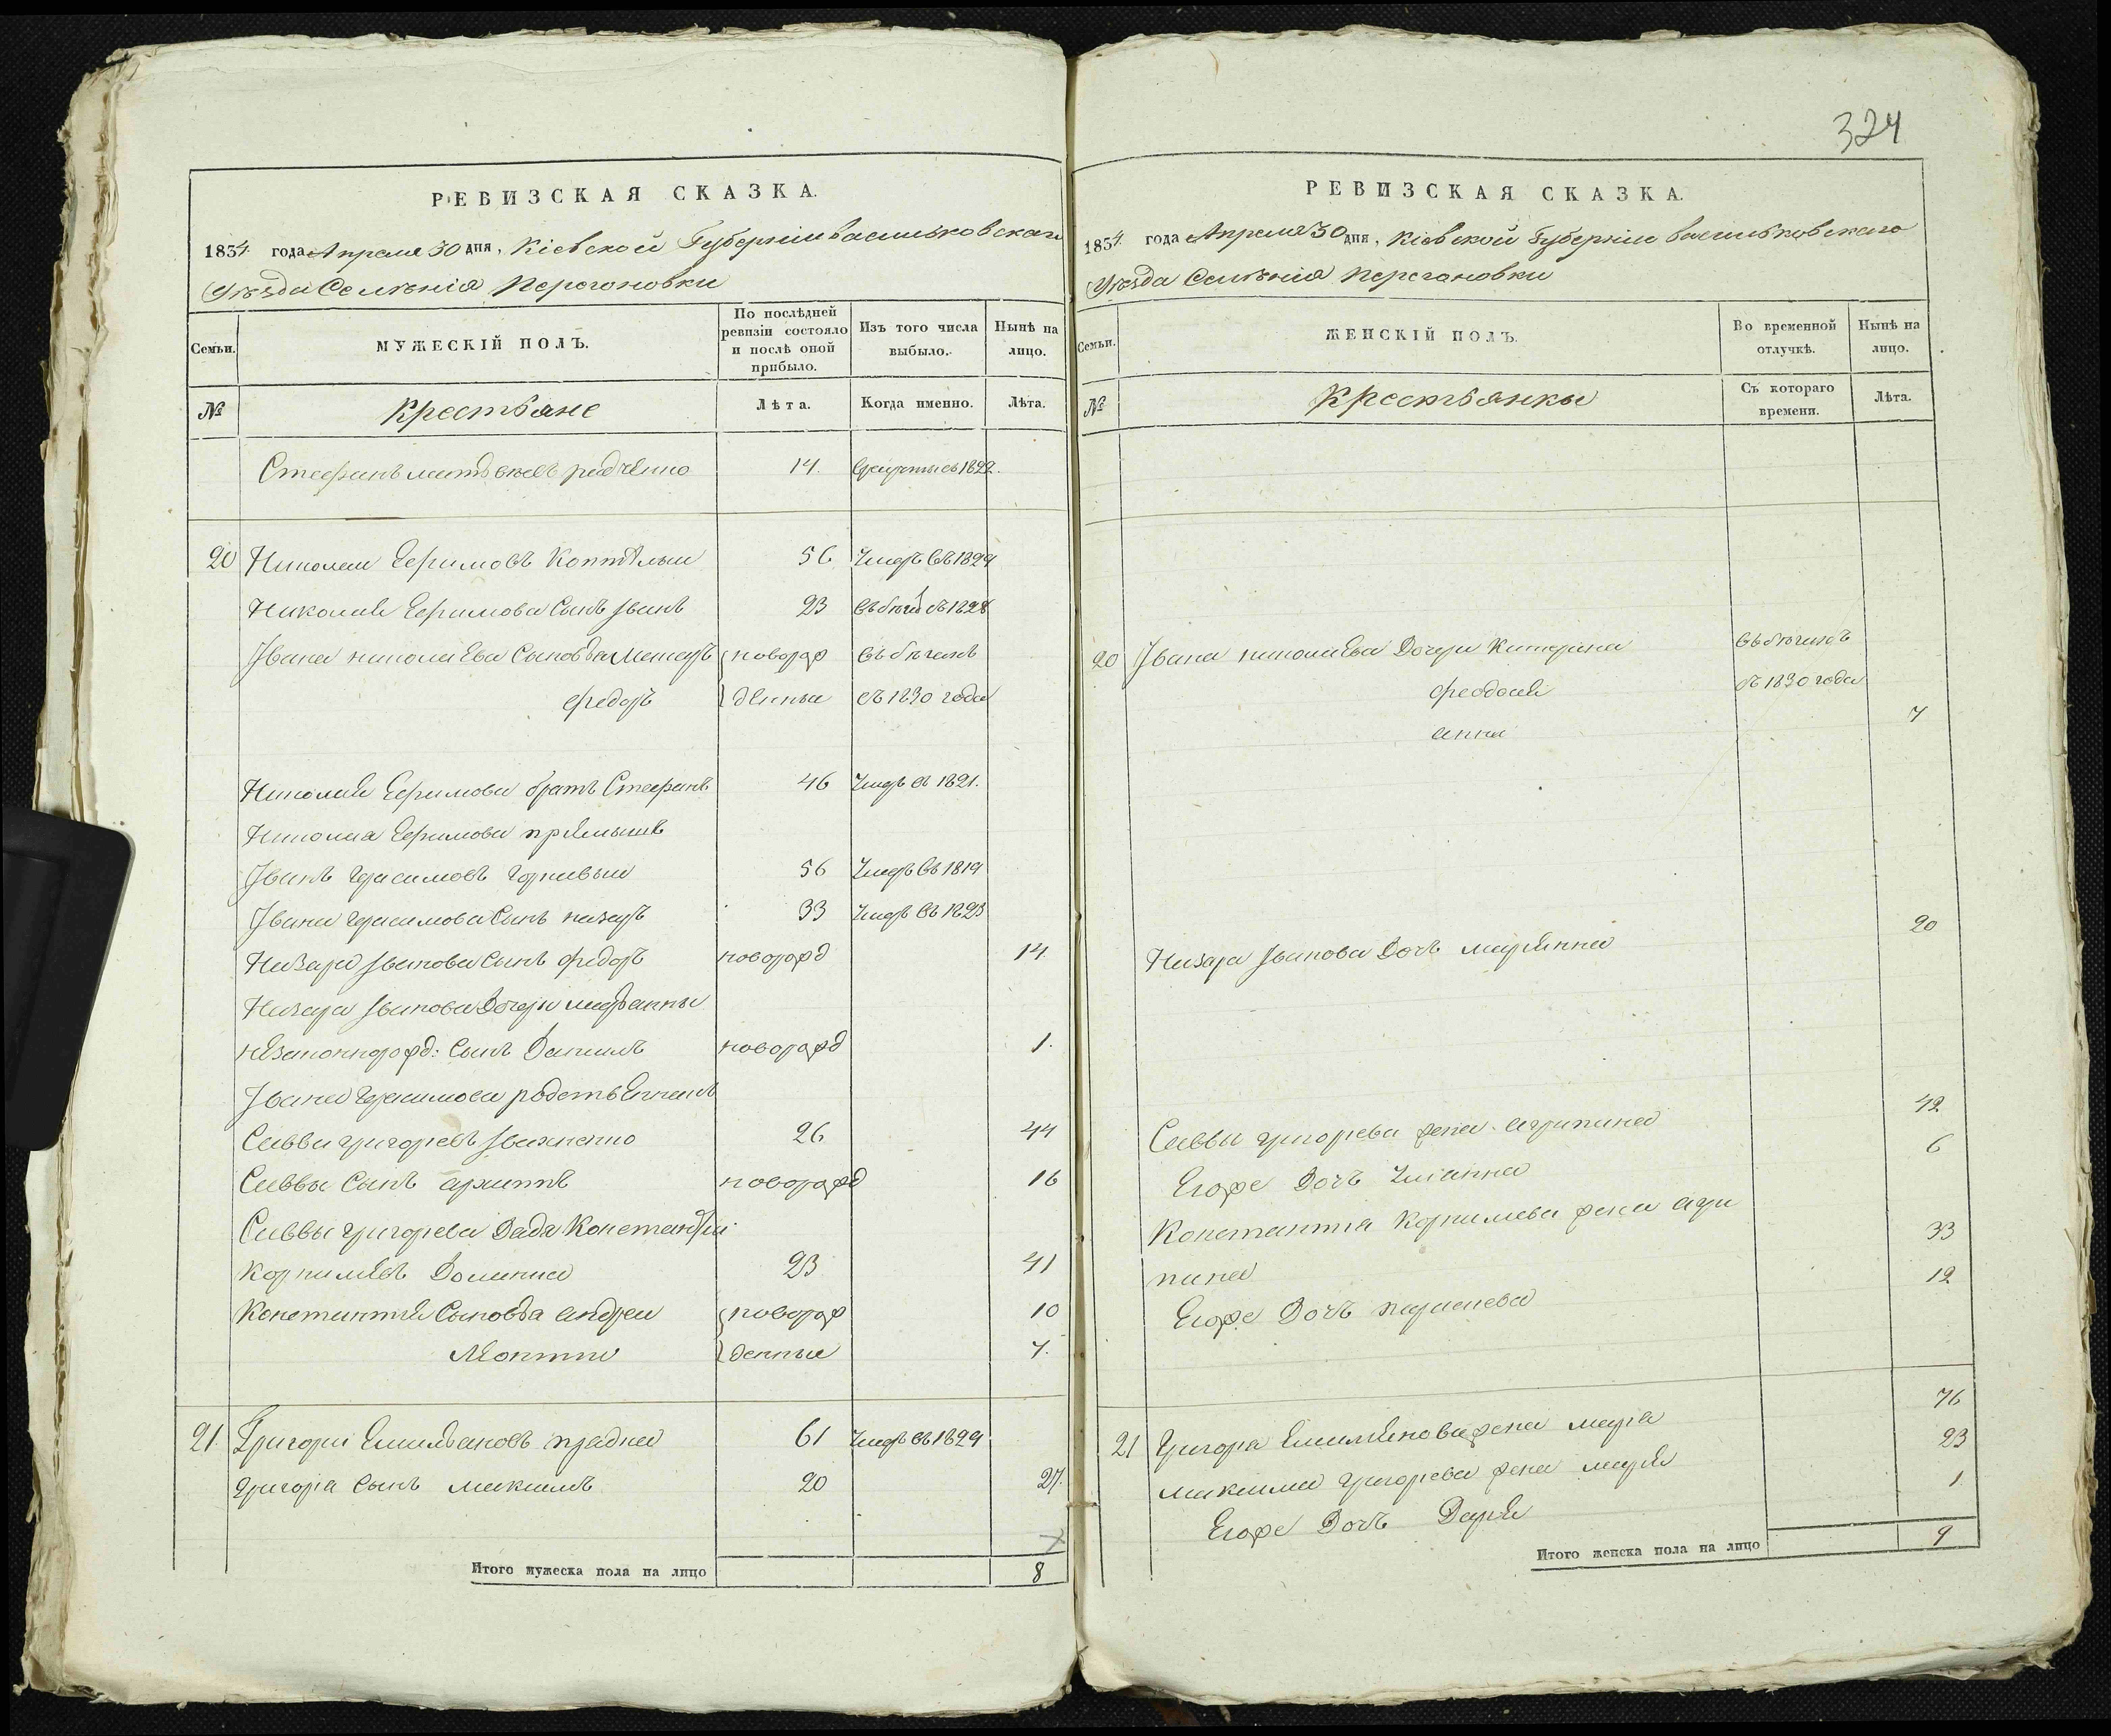 324
РЕВИЗСКАЯ СКАЗКА.
1834 года Апреля 30 дня, Кіевской Губерніи Васильковскаго
Уѣзда Селенія Перегоновки
Семьи.
МУЖЕСКІЙ ПОЛЪ.
По послѣдней ревизіи состояло и послѣ оной прибыло.
Изъ того числа выбыло.
Нынѣ на лицо.
№
Крестьяне
Лѣта.
Когда именно.
Лѣта.
Стефанъ 14. 1822.
20 Николаи Ефимовъ 56 Умеръ въ 1829
Николая Ефимова Сынъ Іванъ 23 1828
Івана николаева Сыновья новорож въ бѣгахъ
федоръ денныи съ 1830 года
Николая Ефимова братъ Стефанъ 46 Умеръ въ 1821.
Николая Ефимова
Іванъ Герасимовъ 56 Умеръ въ 1819
Івана Герасимова Сынъ назаръ 33 Умеръ въ 1823
Назара Іванова Сынъ федоръ новорожд 14
Назара Іванова Дочери марьанны
незаконнорожд: Сынъ Данилъ новорожд 1.
Івана Герасимова родственникъ
Савва григоревъ Івахненко 26 44
Саввы Сынъ новорожд 16
Саввы григорева Дядя Константіи
Корнилевъ 23 41
Константия Сыновья андреи новорож 10
денныи 7.
21. Григори Емильановъ 61 Умеръ въ 1829
Григорія Сынъ максимъ 20 27.
Итого мужеска пола на лицо 8
РЕВИЗСКАЯ СКАЗКА.
1834 года Апреля 30 дня, Кіевской Губерніи Васильковскаго
Уѣзда Селенія Перегоновки
Семьи.
ЖЕНСКІЙ ПОЛЪ.
Во временной отлучкѣ.
Нынѣ на лицо.
№
Крестьянки
Съ котораго времени.
Лѣта.
20 Івана николаева Дочери Катерина въ бѣгахъ
феодосия съ 1830 года
анна 7
Назара Іванова Дочь марианна 20
Саввы григорева жена агрипина 42
Егоже Дочь Улианна 6
Константия Корнилева жена агри
пина 33
Егоже Дочь параскева 12
21 Григория Емилиянова жена мария 76
максима григорева жена мария 23
Егоже Дочь Дария 1
Итого женска пола на лицо 9